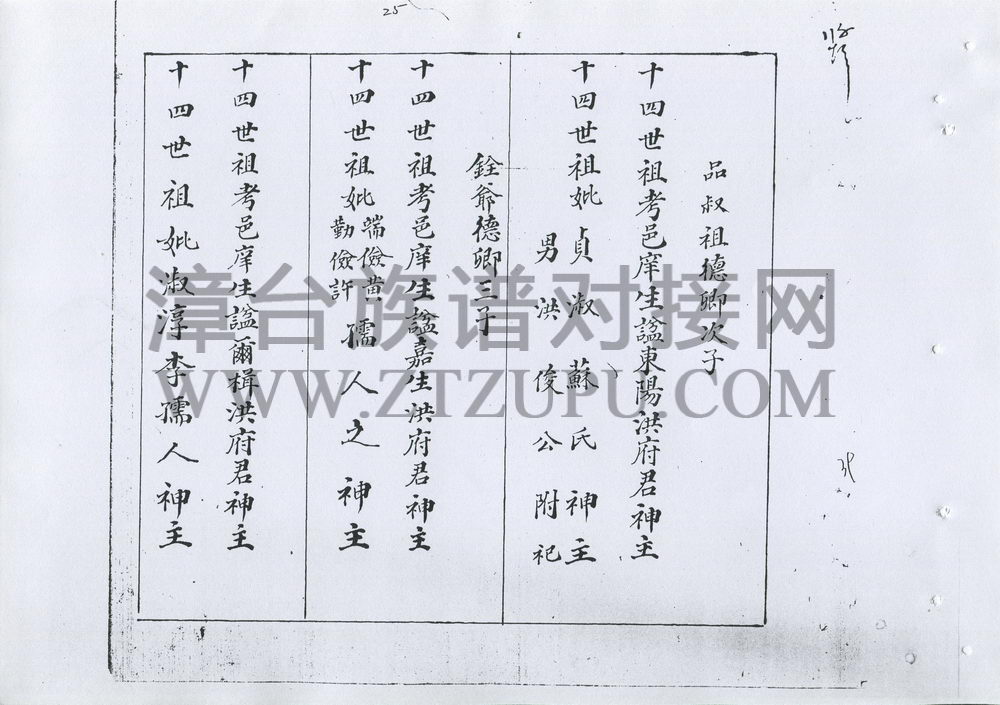 25
品叔祖德卿次子
十四世祖考邑庠生諡東陽洪府君神主
十四世祖妣貞淑蘇氏神主
男洪俊公附祀
銓爺德卿三子
十四世祖考邑庠生諡嘉生洪府君神主
十四世祖妣端儉黄勤儉許孺人之神主
十四世祖考邑庠生諡爾楫洪府君神主
十四世祖妣淑淳李孺人神主
漳台族谱对接网
WWW.ZTZUPU.COM